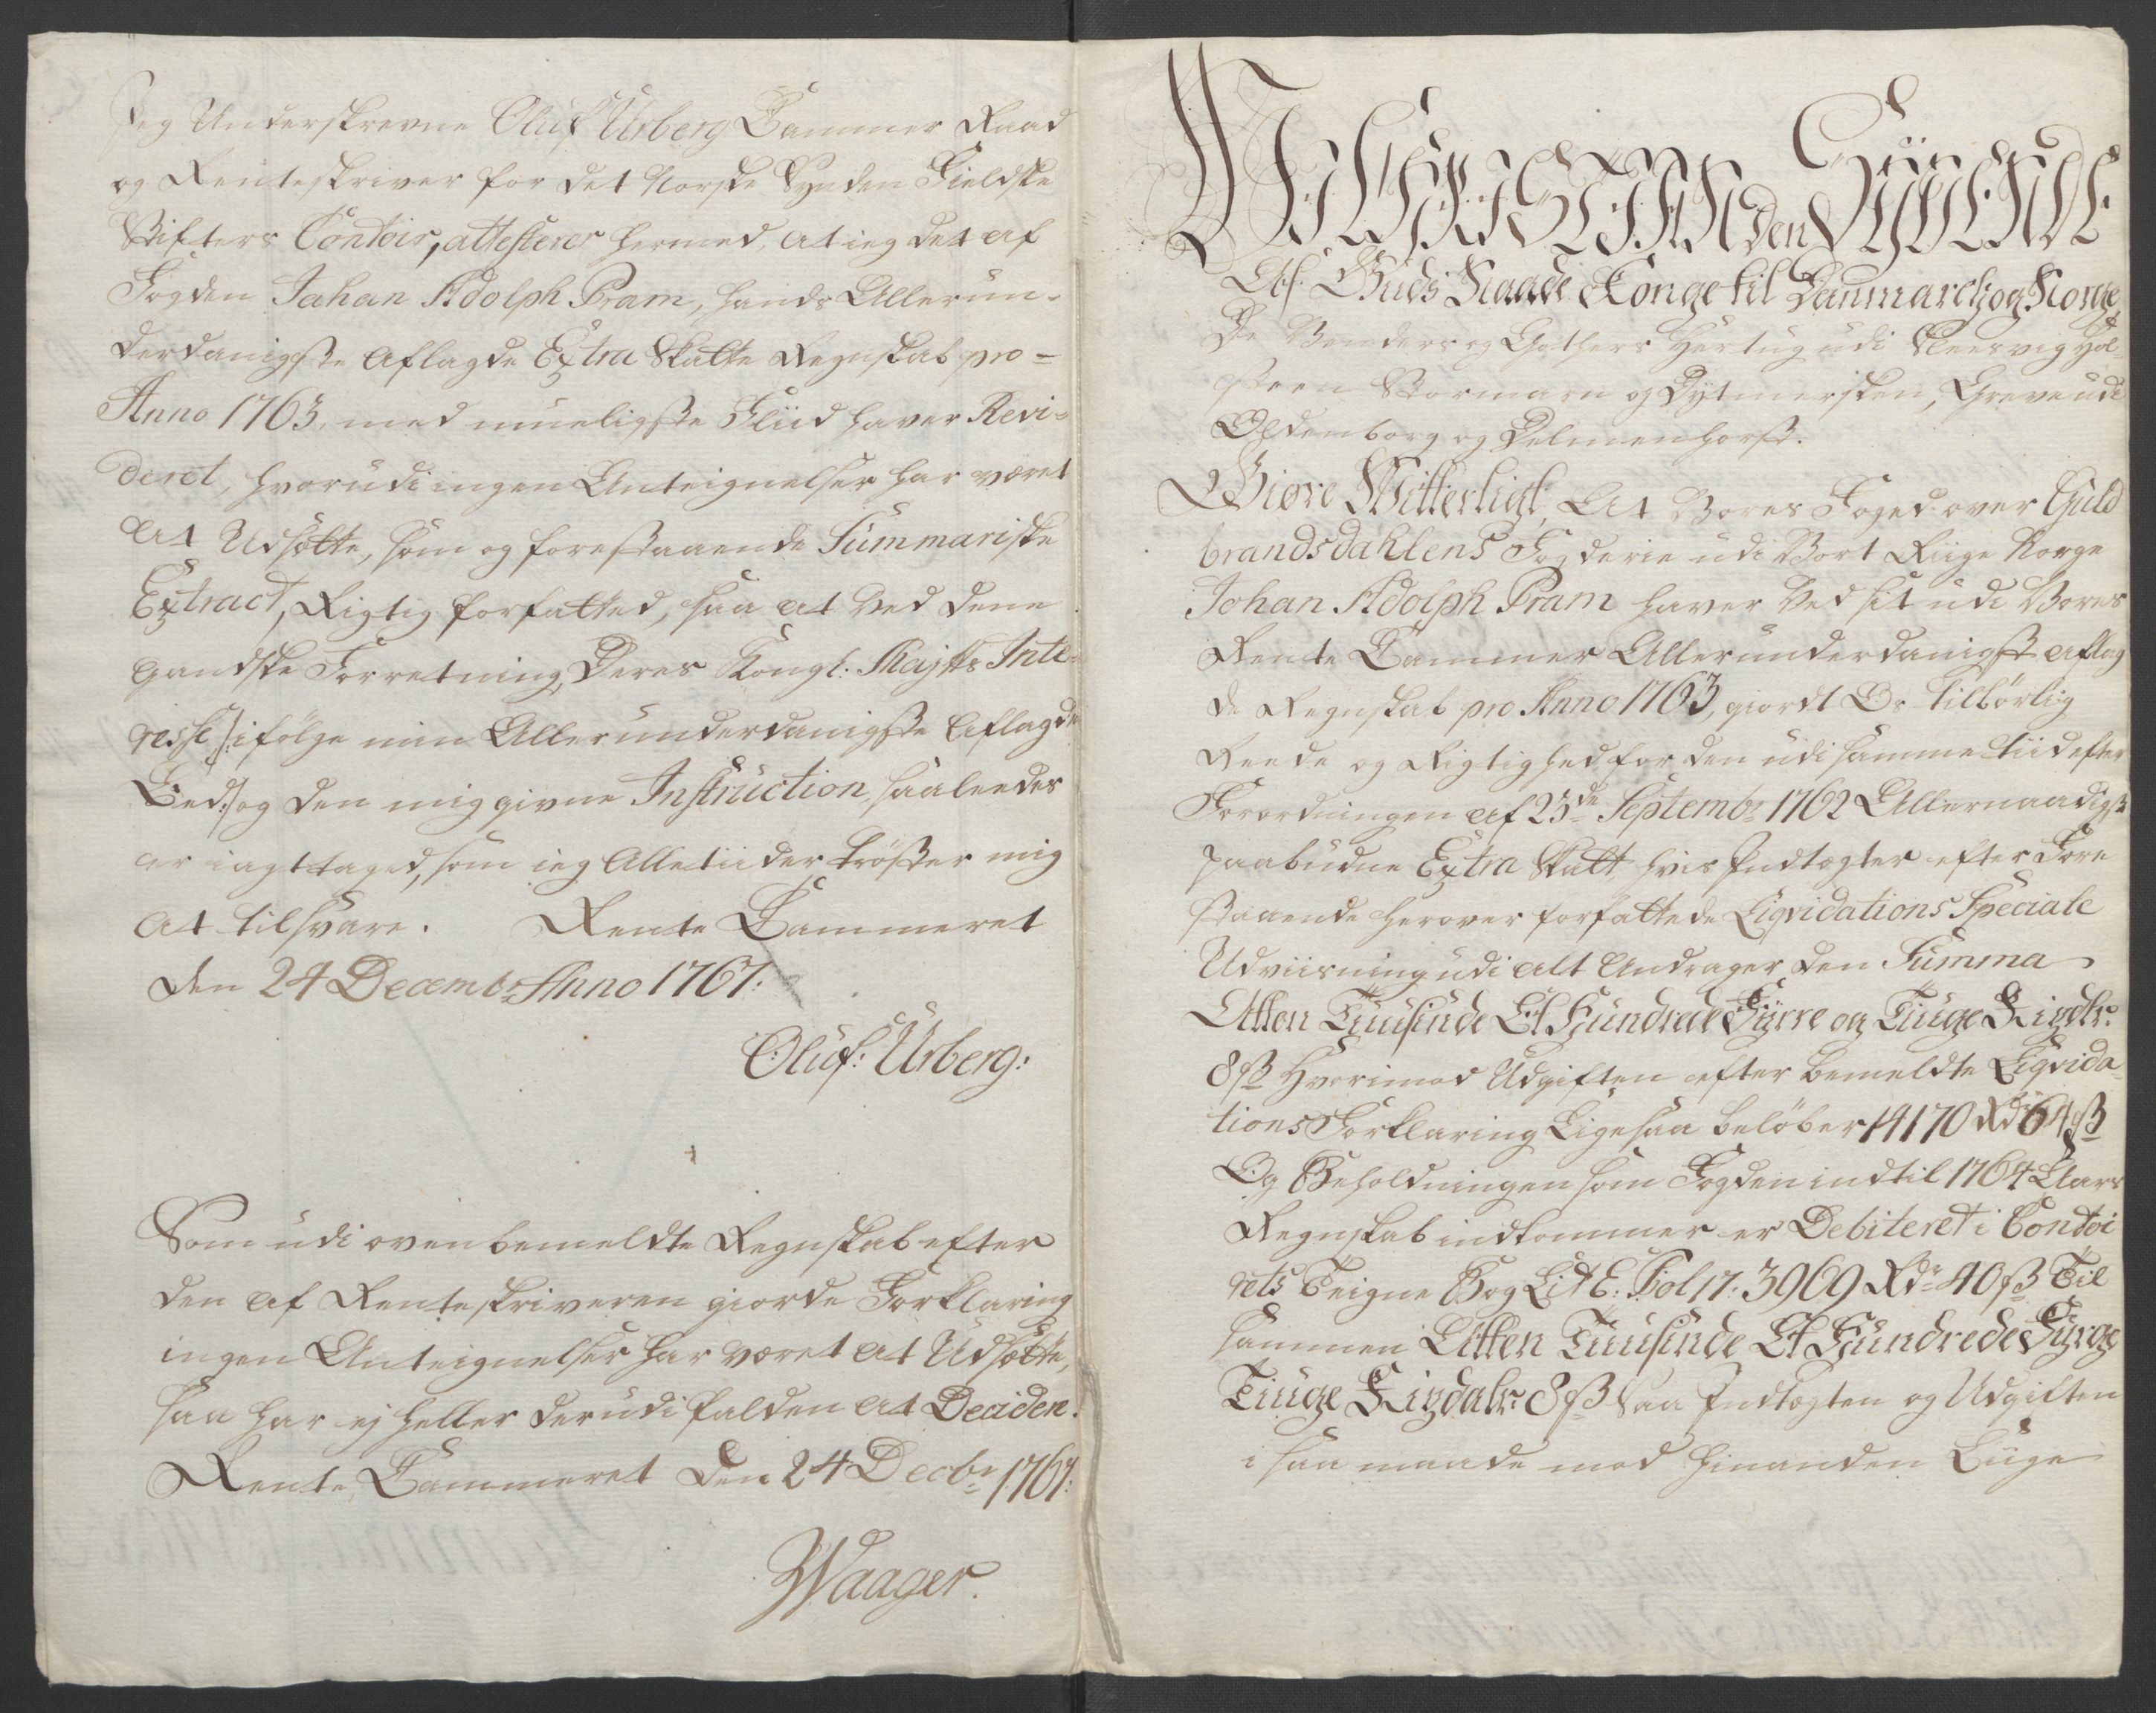 Jeg Underskrevne Oluf Urberg Cammer Raad
og Renteskriver for det Norske Synden Fieldske
Stifters Contoir, attesterer hermed, at ieg det af
Fogden Johan Adolph Pram, hands Allerun-
derdanigste aflagde Extra Skatte Regnskab pro-
Anno 1763, med mueligste Fliid haver Revi-
deret, hvorudi ingen Anteignelser har været
at Udsætte, som og forestaaende Summariske
Extract, Rigtig forfatted, saa at ved denne
gandske Forretning, Deres Kongl: Majtts Inte-
resse /: ifölge min Allerunderdanigste aflagde
Eed :/ og den mig givne Instruction, saaleedes
er iagttaged, som ieg Alletiider tröster mig
at tilsvare. Rente Cammeret
den 24 Decembr Anno 1767.
Oluf: Urberg:
Som udi ovenbemeldte Regnskab efter
den af Renteskriveren giorde Forklaring
ingen Anteignelser har været at Udsætte,
saa har ej heller derudi falden at Deciden:
Rente Cammeret den 24 Decbr 1767.
Waager.
Wi CHRISTIAN den Syvende
Af Guds Naade Konge til Danmarck og Norge,
De Venders og Gothers Hertug udi Sleesvig Hol-
steen Stormarn og Dytmersken, Greve udi
Oldenborg og Delmenhorst.
Giøre Witterligt, At Vores Foged over Guld
brandsdahlens Fogderie udi Vort Riige Norge
Johan Adolph Pram haver ved sit udi Vores
Rente Cammer Allerunderdanigst aflag
de Regnskab pro Anno 1763, giordt Os tilbörlig
Reede og Rigtighed for den udi samme tiid efter
Forordningen af 23de Septembr 1762 Allernaadigst
paabudne Extra Skatt hvis Indtægter efter Fore
staaende herover forfattede Liqvidations Speciale
Udviisning udi alt Andrager den Summa
Atten Tuusinde Et Hundrede Fyrre og Tiuge Rigdlr:
8 ß Hvorimod Udgiften efter bemeldte Liqvida-
tions Forklaring Ligesaa belöber 14170 Rdr 64 ß
Og Beholdningen som Fogden indtil 1764 Aars
Regnskab indkommer er Debiteret i Contoi
rets Teigne Bog Lit E: Fol 17: 3969 Rdr 40 ß Til
sammen Atten Tuusinde Et Hundrede Fyrge
Tiuge Rigdalr: 8 ß Saa Indtægten og Udgiften
i saa maade mod hinanden Liige